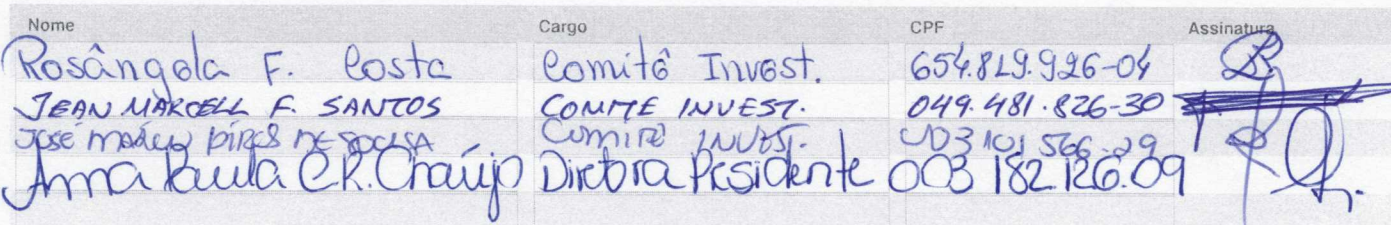 Nome Cargo CPF Assinatura
Rosângela F. Costa Comitê Invest. 654.819.926-04
JEAN MARCELL F. SANTOS COMITE INVEST. 049.481.826-30
JOSÉ PIRES DE COMITE INVEST. 003 101 566-29
Anna Paula C.R. Araújo Diretora Presidente 003 182 126.09